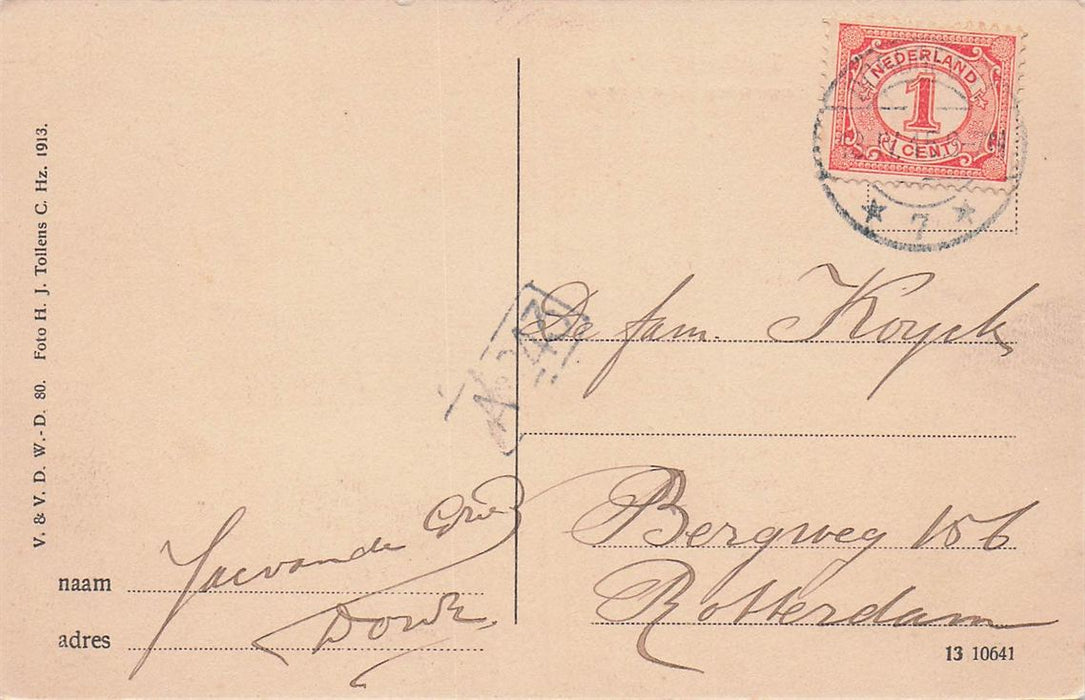 V. & V. D. W.-D. 80. Foto H. J. Tollens C. Hz. 1913.
NEDERLAND
1
1 CENT
7
243
De fam. Koyck
Bergweg 156
Rotterdam
naam Jac van de
adres Dordt
13 10641